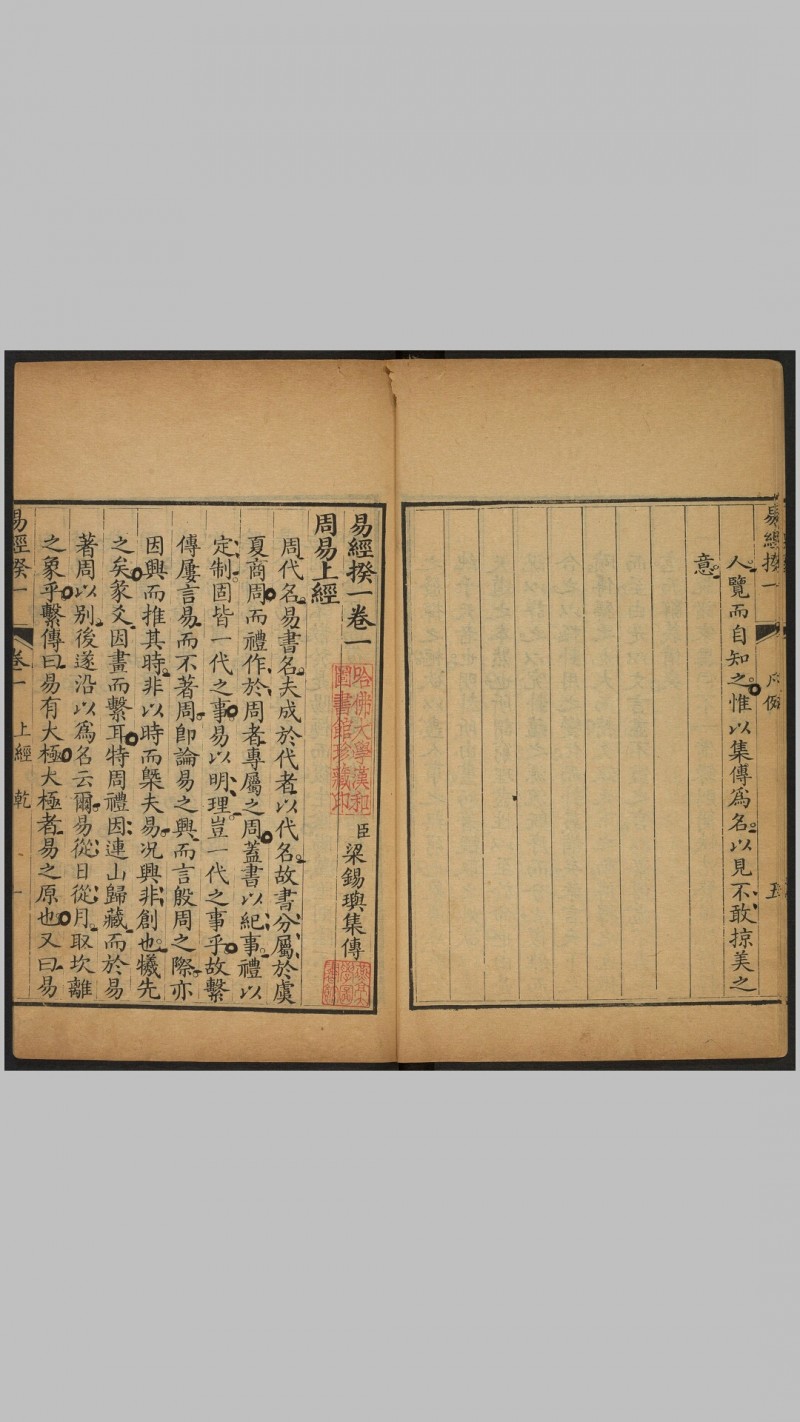 易經揆一
序例
五
人覽而自知之惟以集傳為名以見不敢掠美之
意
易經揆一卷一
哈佛大學漢和
圖書館珍藏印
臣梁錫璵集傳
周易上經
周代名易書名夫成於代者以代名故書分屬於虞
夏商周而禮作於周者專屬之周蓋書以紀事禮以
定制固皆一代之事易以明理豈一代之事乎故繫
傳屢言易而不著周卽論易之興而言殷周之際亦
因興而推其時非以時而槩夫易况興非創也犧先
之矣彖爻因畫而繫耳特周禮因連山歸藏而於易
著周以別後遂沿以為名云爾易從日從月取坎離
之象乎繫傳曰易有大極大極者易之原也又曰易
易經揆一
卷一
上經 乾
一